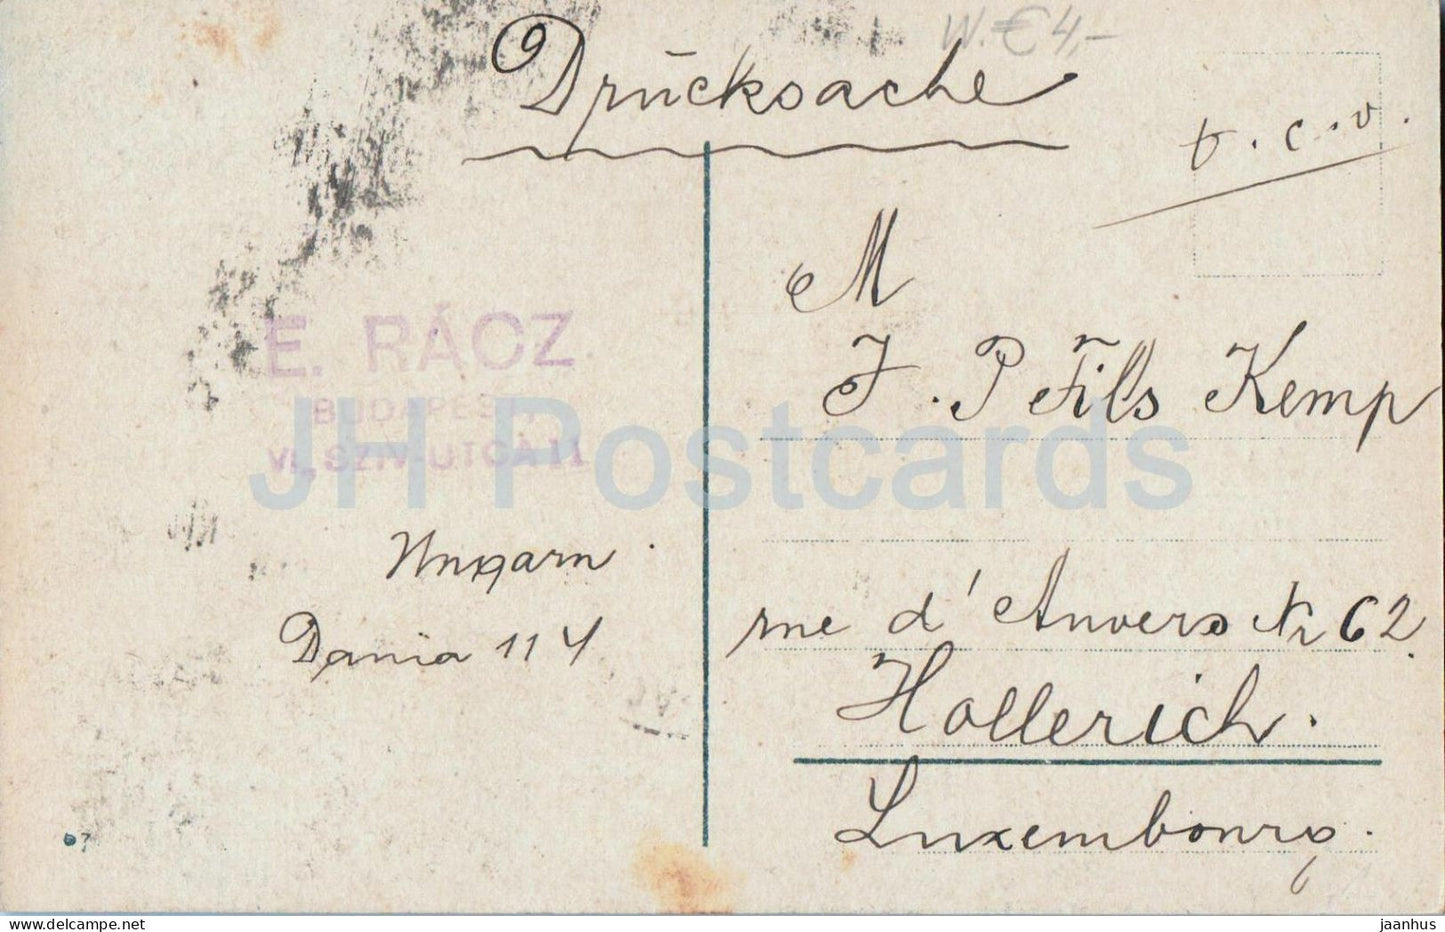 W. € 4,-
Drucksache
t.c.v.
E. RÁCZ
BUDAPEST,
VI., SZIV-UTCA 11
Ungarn.
Dania 114
M
J. P Fils Kemp
rue d'Anvers Nr 62.
Hollerich.
Luxembourg.
JH Postcards
www.delcampe.net
jaanhus